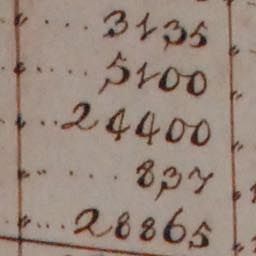 " .... 3135
" .... 5100
" ... 24400
" .... 837
" ... 28865